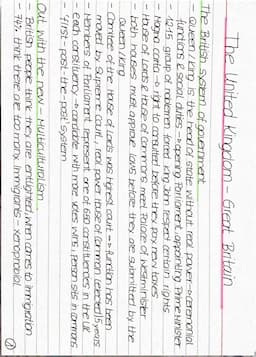 The United Kingdom - Great Britain
The British system of government
- Queen/King is the head of state without real power → ceremonial
functions & social duties → opening Parliament, appointing Prime Minister
- 1215 group of noblemen forced King John respect certain rights
- Magna Carta → right to be consulted before they pay new taxes
- House of Lords & House of Commons meet Palace of Westminister
- both houses must approve laws before they are submitted by the
Queen/King
- one of the House of Lords was highest court → function has been
moved to Supreme Court, real power House of Common (elected 5 years)
- Members of Parliament represent one of 650 constituencies in the UK
- each constituency → candidate with more votes wins, person sits in Commons
- "first-past-the-post system
Out with the new - Multiculturalism
- British people think they are enlightened when comes to immigration
- 74% think there are too many immigrants - xenophobia!